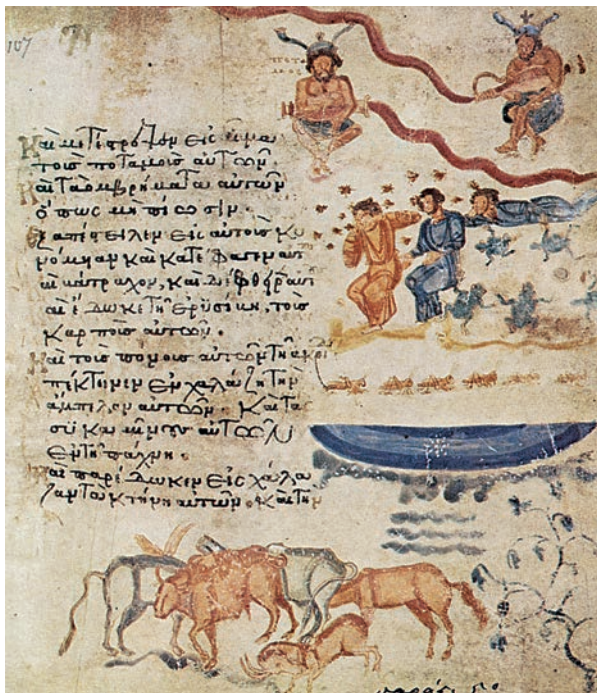 107
ΠΟΤΑ
ΜΟΣ
Καὶ μετέστρεψεν εἰς αἷμα
τοὺς ποταμοὺς αὐτῶν.
καὶ τὰ ὀμβρήματα αὐτῶν
ὅπως μὴ πίωσιν.
ἐξαπέστειλεν εἰς αὐτοὺς κυ
νόμυιαν καὶ κατέφαγεν αυτ
καὶ βάτραχον, καὶ αυτ
καὶ ἔδωκε τῇ ἐρυσίβῃ, τοὺς
καρποὺς αὐτῶν.
καὶ τοὺς πόνους αὐτῶν τῇ ἀκρί
ἀπέκτεινεν ἐν χαλάζῃ τὴν
ἄμπελον αὐτῶν. Καὶ τὰς
συκαμίνους αὐτῶν
ἐν τῇ πάχνῃ.
καὶ παρέδωκεν εἰς χάλα
ζαν τὰ κτήνη αὐτῶν. Καὶ τὴν